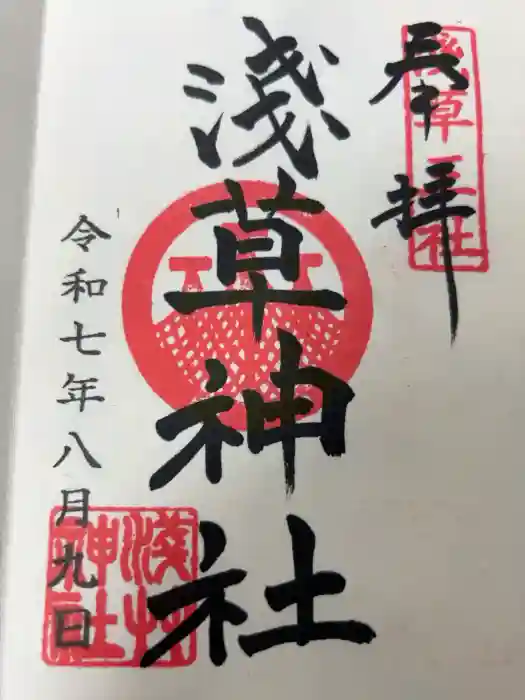 奉拝
淺草三社
淺草神社
令和七年八月九日
淺草神社